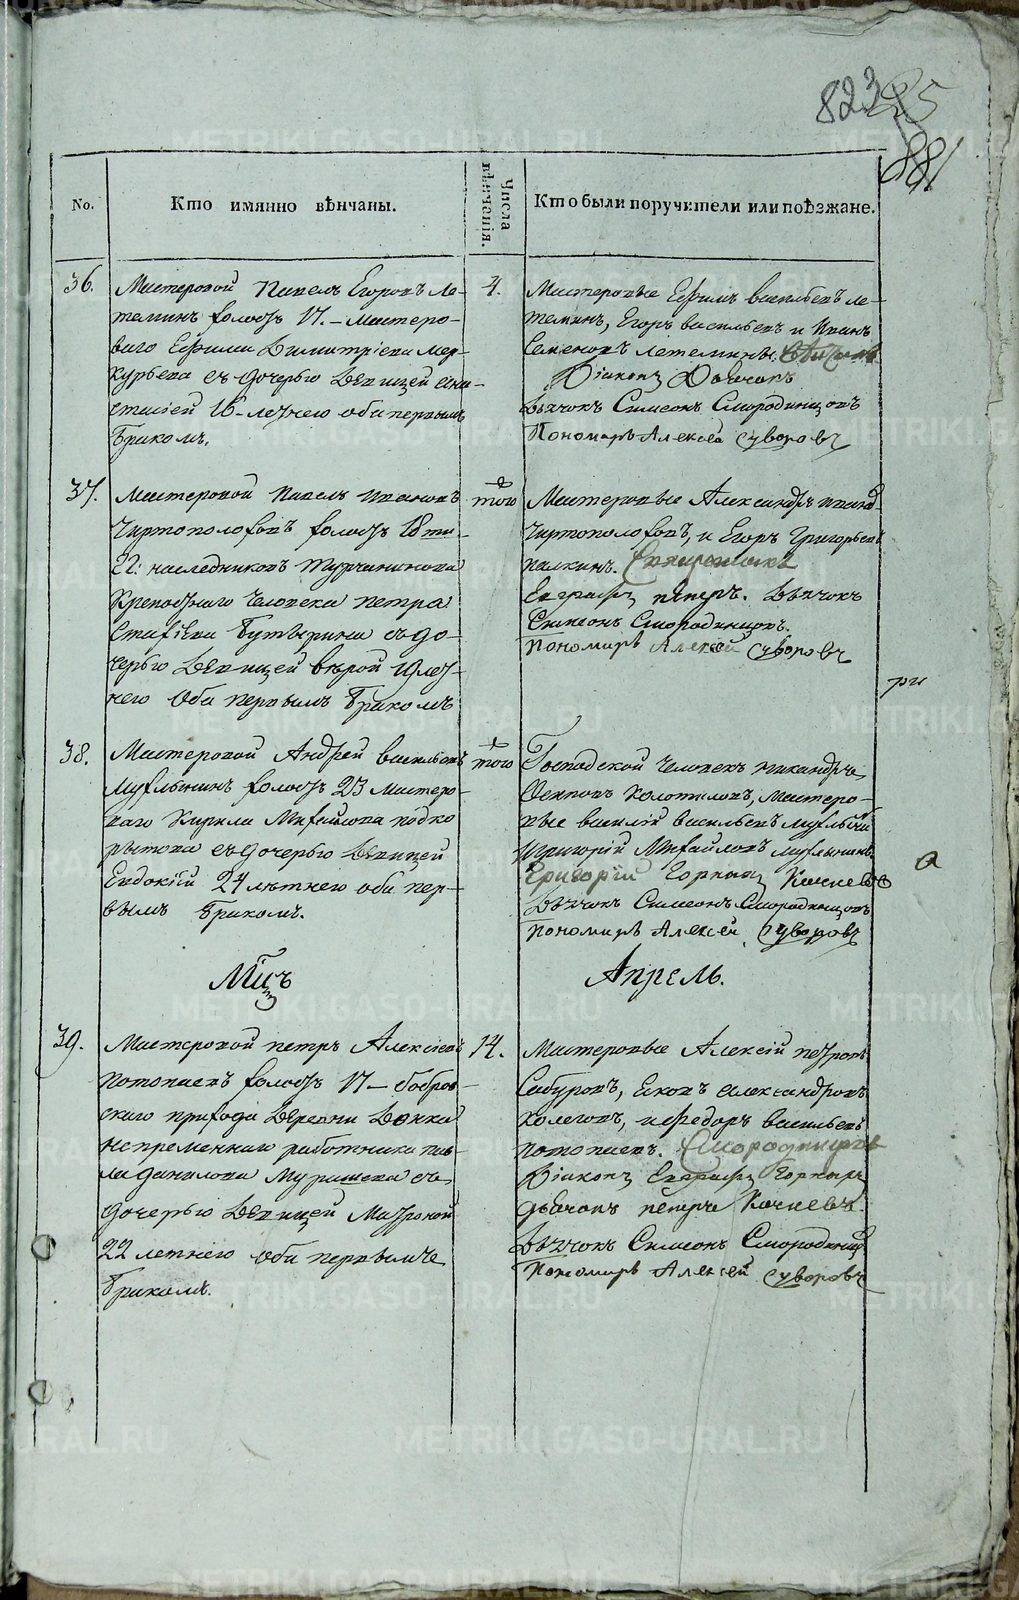 823 25
881
No.
Кто имянно вѣнчаны.
Числа вѣнчанія.
Кто были поручители или поѣзжане.
36.
Мастеровой Павелъ Егоровъ Ле-
теминъ холостъ 17. – Мастеро-
ваго Ефима Димитріева Мер-
курьева съ дочерью дѣвицей Ана-
стасіей 16-летнею оба первымъ
бракомъ.
4.
Мастеровые Ефимъ васильевъ ле-
теминъ, Егоръ васильевъ и Иванъ
Семеновъ летемины.
Діаконъ
Дьячокъ Симеонъ Смородинцовъ
Пономарь Алексей Суворовъ
37.
Мастеровой Павелъ Ивановъ
Чиртополоховъ холостъ 18ти –
Гг: наследниковъ Турчанинова
Крепостнаго человека петра
Бутырина съ до-
черью дѣвицей вѣрой 19лет-
него Оба первымъ бракомъ
того
Мастеровые Александръ Иванов
Чиртополоховъ, и Егоръ Григорьевъ
палкинъ.
Евграфъ Дьячокъ
Симеонъ Смородинцовъ.
Пономарь Алексей Суворовъ
ри
38.
Мастеровой Андрей васильевъ
Мухлынинъ холостъ 23 Мастеро-
ваго Кирила Михайлова подко
рытова съ дочерью дѣвицей
Евдокіей 24 лѣтнего оба пер-
вымъ бракомъ.
того
Господской человекъ никандръ
Колотиловъ, мастеро-
вые василій васильевъ мухлынин
и григорій Михайловъ мухлынинъ.
Григорій Горныхъ Кочневъ
Дьячокъ Симеонъ Смородинцовъ
Пономарь Алексей Суворовъ
а
Мцъ Апрель.
39.
Мастеровой петръ Алексеевъ
потопаевъ холостъ 17 – бобров-
скаго прихода деревни
непременнаго работника пав-
ла данилова Мурашева съ
дочерью дѣвицей Матроной
22 летнего оба первымъ
бракомъ.
14.
Мастеровые Алексій петровъ
Сабуровъ, Александровъ
и федоръ васильевъ
потопаевъ.
Діаконъ Евграфъ Горныхъ
дьячокъ петръ Кочневъ
Дьячокъ Симеонъ Смородинцо
Пономарь Алексей Суворовъ
METRIKI.GASO-URAL.RU